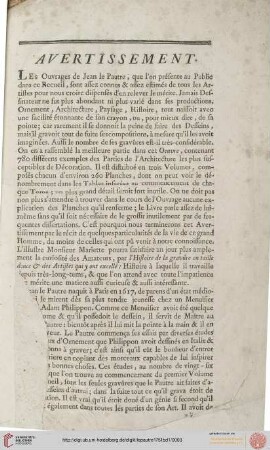 AVERTISSEMENT.
LES Ouvrages de Jean le Pautre, que l'on présente au Public
dans ce Recueil, sont assez connus & assez estimés de tous les Ar-
tistes pour nous croire dispensés d'en relever le mérite. Jamais Des-
sinateur ne fut plus abondant ni plus varié dans ses productions,
Ornement, Architecture, Paysage, Histoire, tout naissoit avec
une facilité étonnante de son crayon, ou, pour mieux dire, de sa
pointe; car rarement il se donnoit la peine de faire des Desseins,
mais il gravoit tout de suite ses compositions, à mesure qu'il les avoit
imaginées. Aussi le nombre de ses gravûres est-il très-considérable.
On en a rassemblé la meilleure partie dans cet Œuvre, contenant
780 différens exemples des Parties de l'Architecture les plus sus-
ceptibles de Décoration. Il est distribué en trois Volumes, com-
posés chacun d'environ 260 Planches, dont on peut voir le dé-
nombrement dans les Tables insérées au commencement de cha-
que Tome; un plus grand détail seroit fort inutile. On ne doit pas
non plus s'attendre à trouver dans le cours de l'Ouvrage aucune ex-
plication des Planches qu'il renferme; le Livre parle assez de lui-
même sans qu'il soit nécessaire de le grossir inutilement par de fré-
quentes dissertations. C'est pourquoi nous terminerons cet Aver-
tissement par le récit de quelques particularités de la vie de ce grand
Homme, du moins de celles qui ont pû venir à notre connoissance.
L'illustre Monsieur Mariette pourra satisfaire un jour plus ample-
ment la curiosité des Amateurs, par l'Histoire de la gravûre en taille
douce & des Artistes qui y ont excellé: Histoire à laquelle il travaille
depuis très-long-tems, & que l'on attend avec toute l'impatience
mérite une matiere aussi curieuse & aussi intéressante.
le Pautre naquit à Paris en 1617, de parens d'un état médio-
le mirent dès sa plus tendre jeunesse chez un Menuisier
Adam Philippon. Comme ce Menuisier avoit été quelque
& qu'il possédoit le dessein, il servit de Maître au
Pautre; bientôt après il lui mit la pointe à la main & il en
Le Pautre commença ses essais par diverses études
d'Ornement que Philippon avoit dessinés en Italie &
à graver; c'est ainsi qu'il eut le bonheur d'entrer
en copiant des morceaux capables de lui inspirer
bonnes choses. Ces études, au nombre de vingt-
que l'on trouve au commencement du premier Volume
sont les seules gravûres que le Pautre ait faites d'a-
d'autrui; dans la suite tout ce qu'il grava étoit de
Il est vrai qu'il étoit doué d'un génie si fecond qu'il
également dans toutes les parties de son Art. Il avoit de
http://digi.ub.uni-heidelberg.de/diglit/lepautre1751bd1/0003